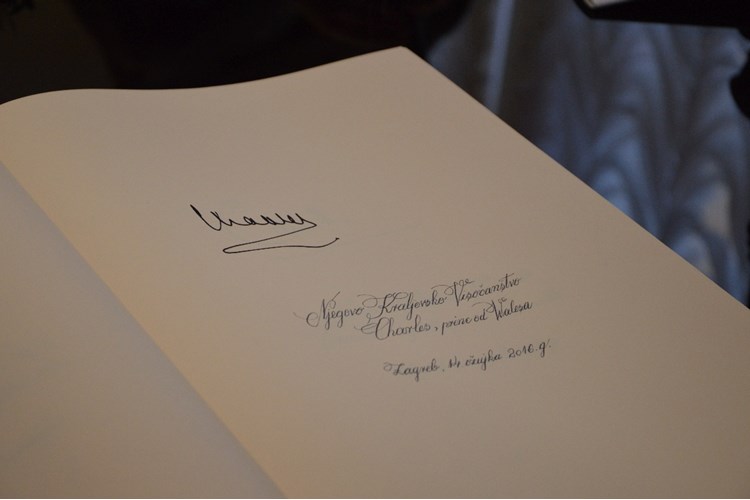 Charles
Njegovo Kraljevsko Visočanstvo
Charles, princ od Walesa
Zagreb, 14. ožujka 2016. g.